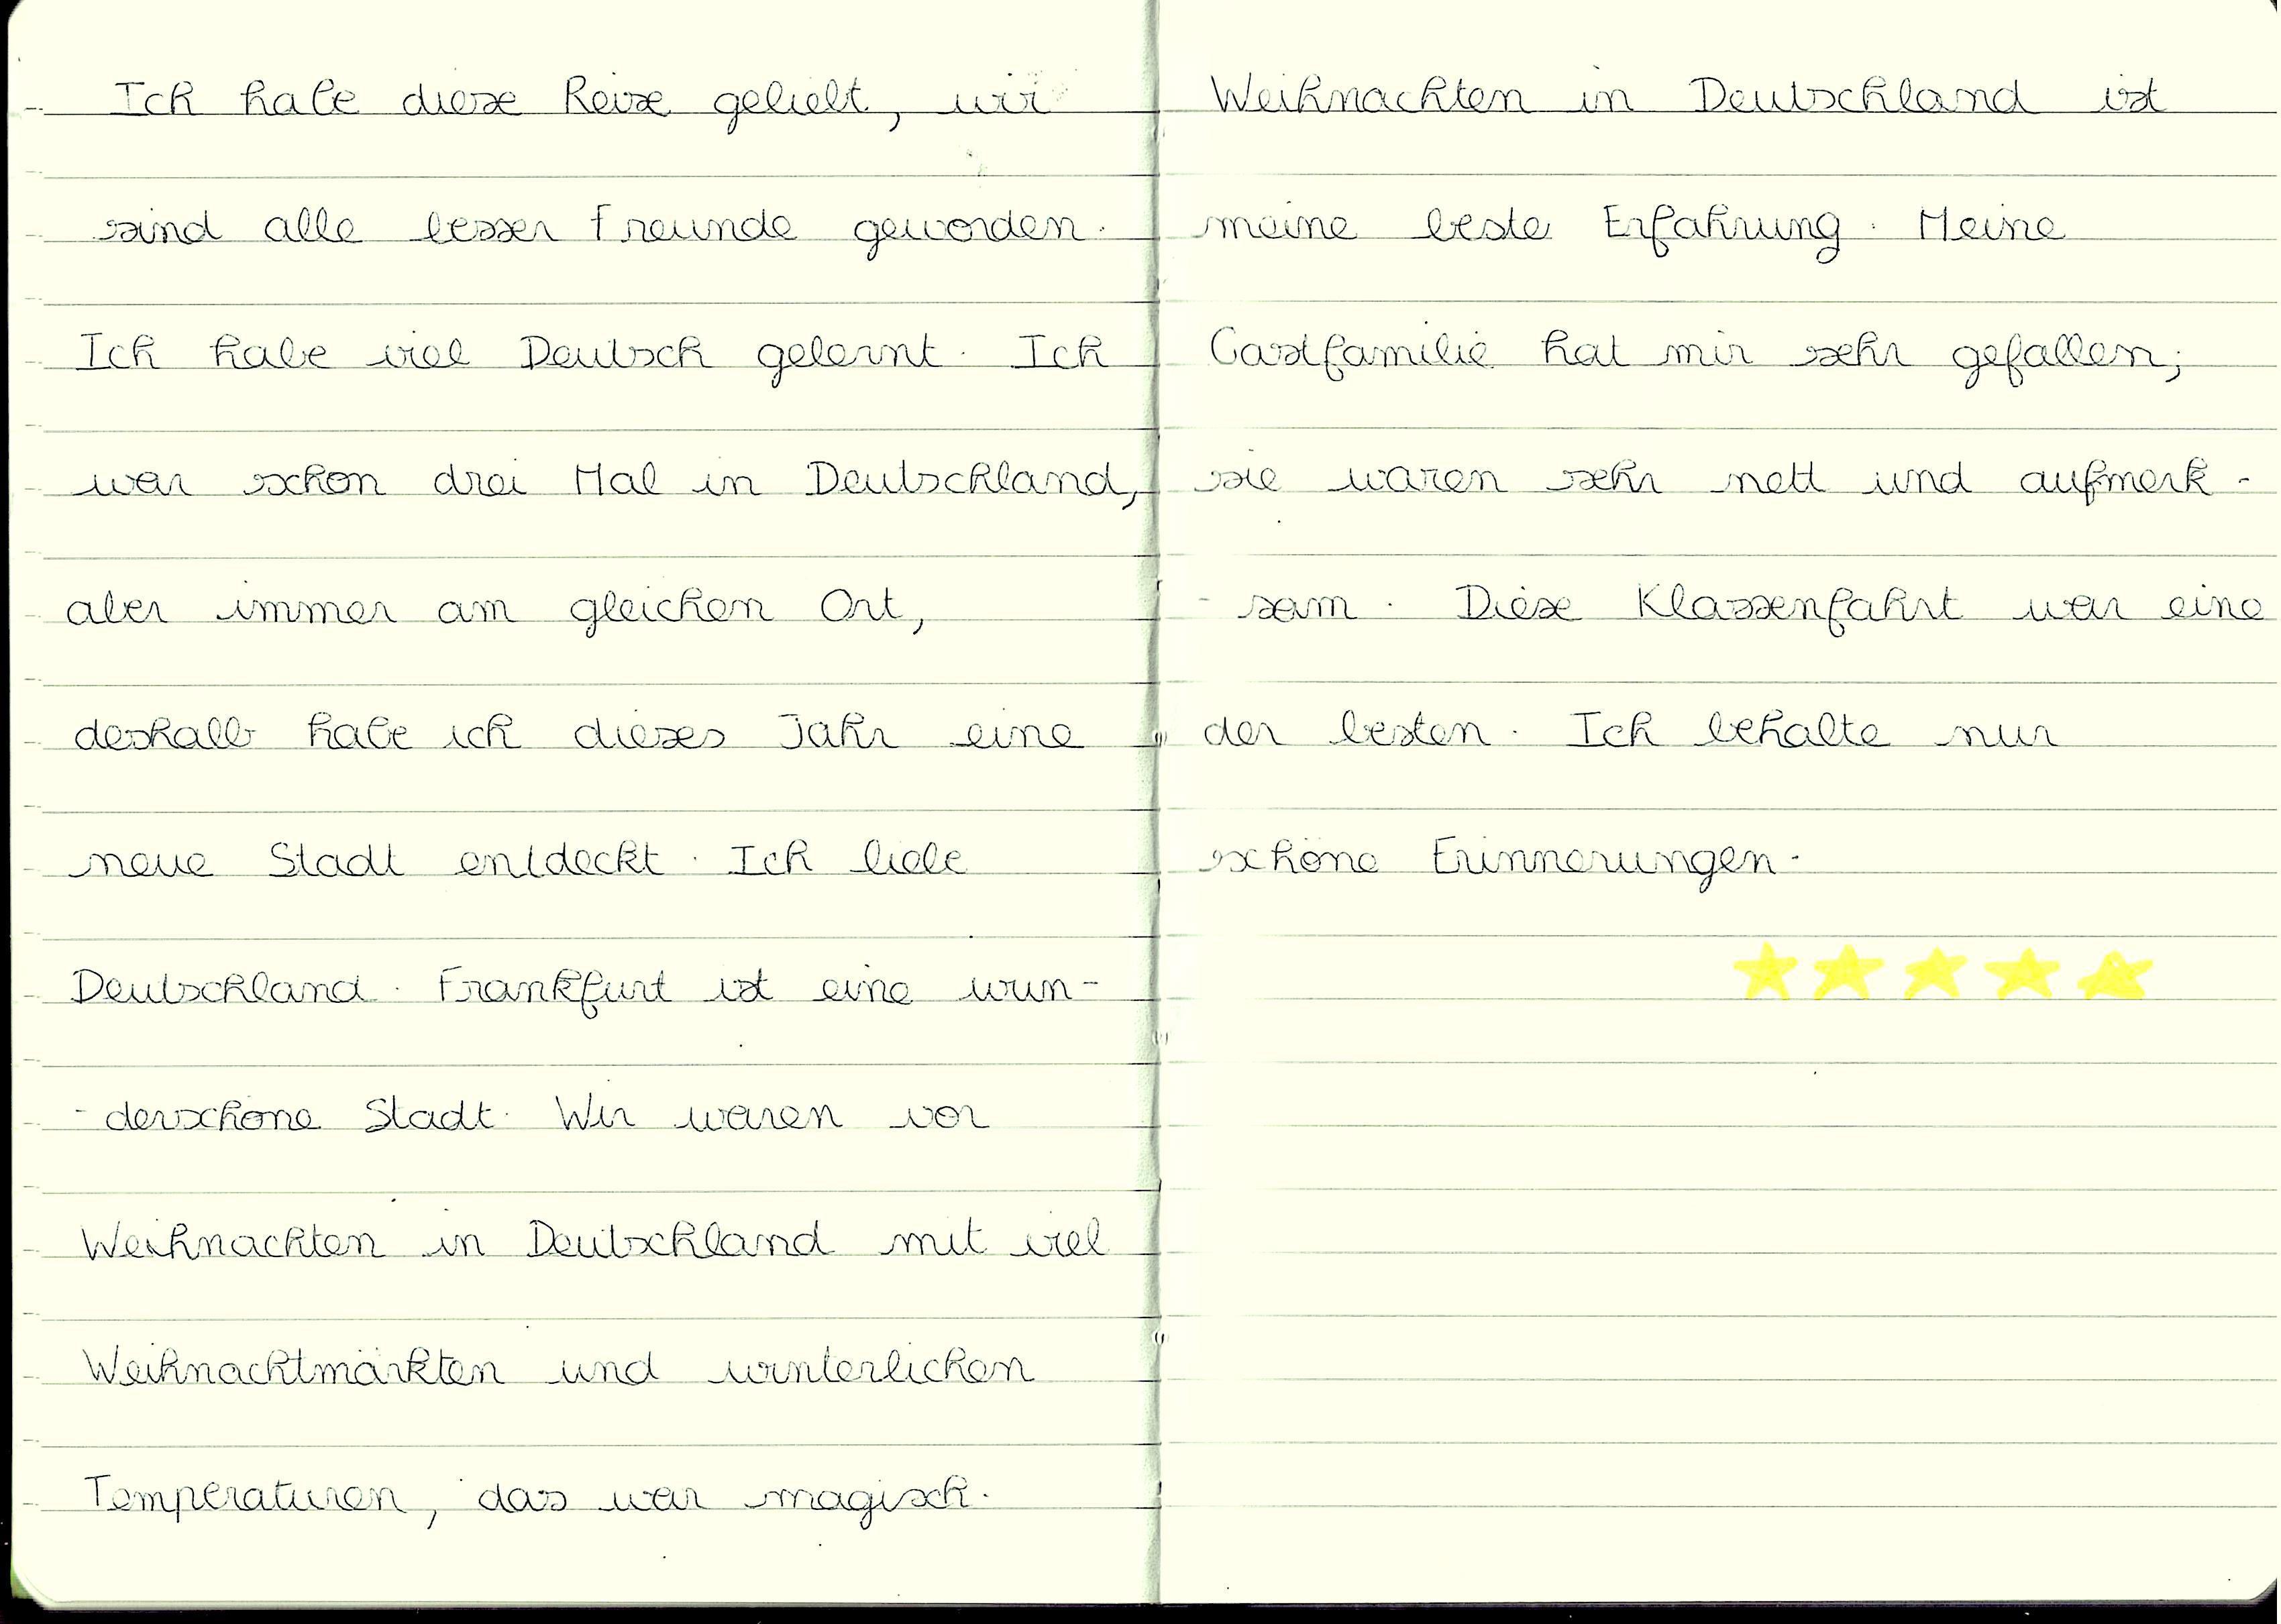 Ich habe diese Reise geliebt, wir
sind alle besser Freunde geworden.
Ich habe viel Deutsch gelernt. Ich
war schon drei Mal in Deutschland,
aber immer am gleichen Ort,
deshalb habe ich dieses Jahr eine
neue Stadt entdeckt. Ich liebe
Deutschland. Frankfurt ist eine wun-
-derschöne Stadt. Wir waren vor
Weihnachten in Deutschland mit viel
Weihnachtmärkten und winterlichen
Temperaturen, das war magisch.
Weihnachten in Deutschland ist
meine beste Erfahrung. Meine
Gastfamilie hat mir sehr gefallen;
sie waren sehr nett und aufmerk-
-sam. Diese Klassenfahrt war eine
der besten. Ich behalte nur
schöne Erinnerungen.